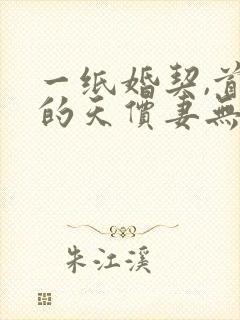 一纸婚契,首
的天價妻無
朱江溪